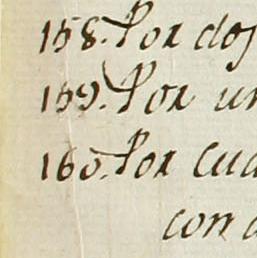 158. Por dos
159. Por un
160. Por cua
con